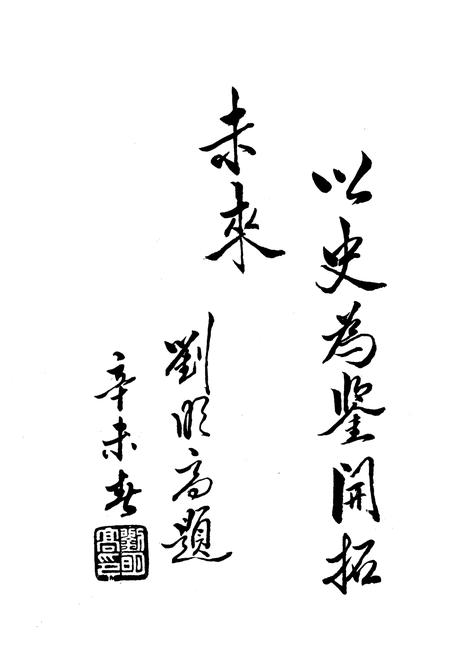 以史為鉴開拓
未來
劉明高題
辛未春
劉明高印